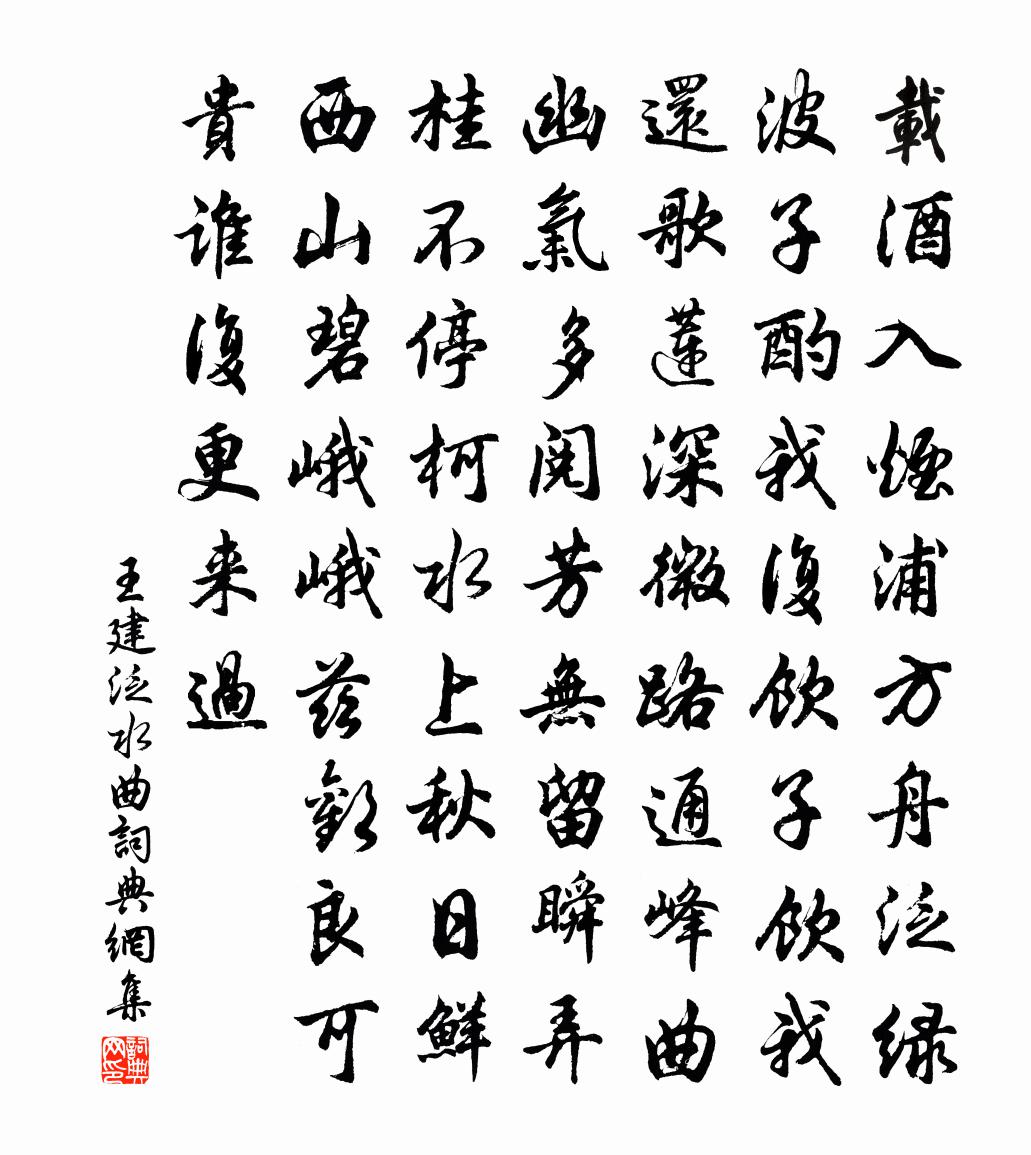 載酒入煙浦方舟泛緑
波子酌我復飲子飲我
還歌蓮深微路通峰曲
幽氣多閲芳無留瞬弄
桂不停柯水上秋日鮮
西山碧峨峨茲歡良可
貴誰復更来過
王建泛水曲詞典網集
詞典网印